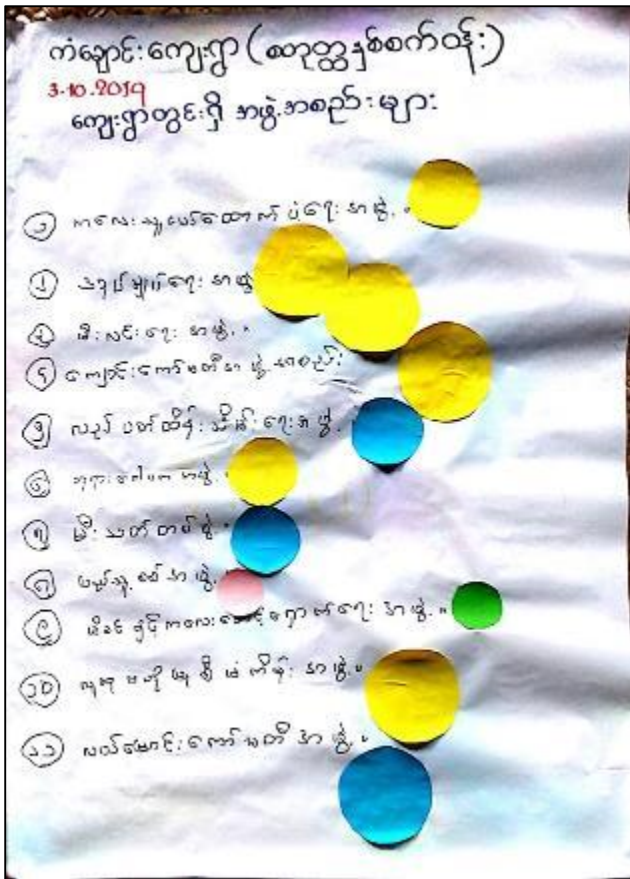 ကံချောင်းကျေးရွာ (စောတုတ္ထနှစ်စက်ဝန်း)
3-10.2019
ကျေးရွာတွင်းရှိ အဖွဲ့အစည်းများ
၁ ကလေးသူငယ်ထောက်ပံ့ရေး အဖွဲ့.
၂ အုပ်ချုပ်ရေး အဖွဲ့
၃ မီးလင်းရေး အဖွဲ့.
၄ ကျောင်းကော်မတီအဖွဲ့အစည်း
၅ လည်ပတ်ထိန်းသိမ်းရေးအဖွဲ့.
၆ ဘုရားဂေါပက အဖွဲ့.
၇ မီးသတ်တပ်ဖွဲ့.
၈ ပြည်သူ့စစ် အဖွဲ့.
၉ မိခင်နှင့်ကလေးစောင့်ရှောက်ရေး အဖွဲ့.
၁၀ အဖွဲ့.
၁၁ ကော်မတီ အဖွဲ့.